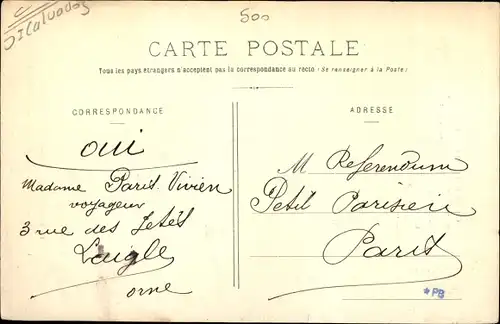 Calvados
500
CARTE POSTALE
Tous les pays étrangers n'acceptent pas la correspondance au recto (Se renseigner à la Poste)
CORRESPONDANCE
ADRESSE
oui
Madame Paris Vivien
voyageur
3 rue des Jetés
Laigle
orne
M Referendum
Petit Parisien
Paris
*PB